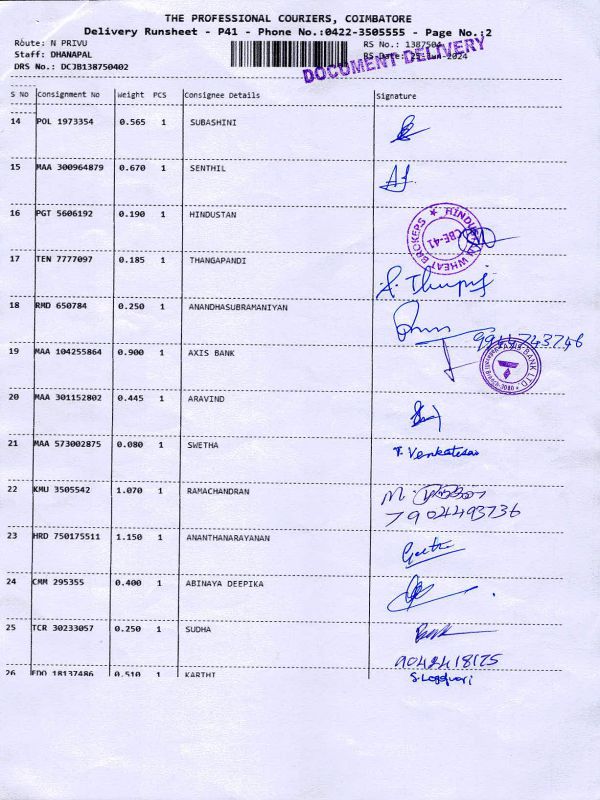 THE PROFESSIONAL COURIERS, COIMBATORE
Delivery Runsheet - P41 - Phone No.:0422-3505555 - Page No.:2
Route: N PRIVU
RS No.: 1387504
Staff: DHANAPAL
RS-Date: 25-Jun-2024
DRS No.: DCJB138750402
DOCUMENT DELIVERY
S No Consignment No Weight PCS Consignee Details Signature
14 POL 1973354 0.565 1 SUBASHINI
15 MAA 300964879 0.670 1 SENTHIL
16 PGT 5606192 0.190 1 HINDUSTAN
WHEAT BROKERS
CBE-41
17 TEN 7777097 0.185 1 THANGAPANDI
18 RMD 650784 0.250 1 ANANDHASUBRAMANIYAN
9944743746
19 MAA 104255864 0.900 1 AXIS BANK
BANK LTD.
20 MAA 301152802 0.445 1 ARAVIND
21 MAA 573002875 0.080 1 SWETHA
T. Venkatesao
22 KMU 3505542 1.070 1 RAMACHANDRAN
M.
7904493736
23 HRD 750175511 1.150 1 ANANTHANARAYANAN
24 CMM 295355 0.400 1 ABINAYA DEEPIKA
25 TCR 30233057 0.250 1 SUDHA
9042418125
26 EDO 18137486 0.510 1 KARTHI